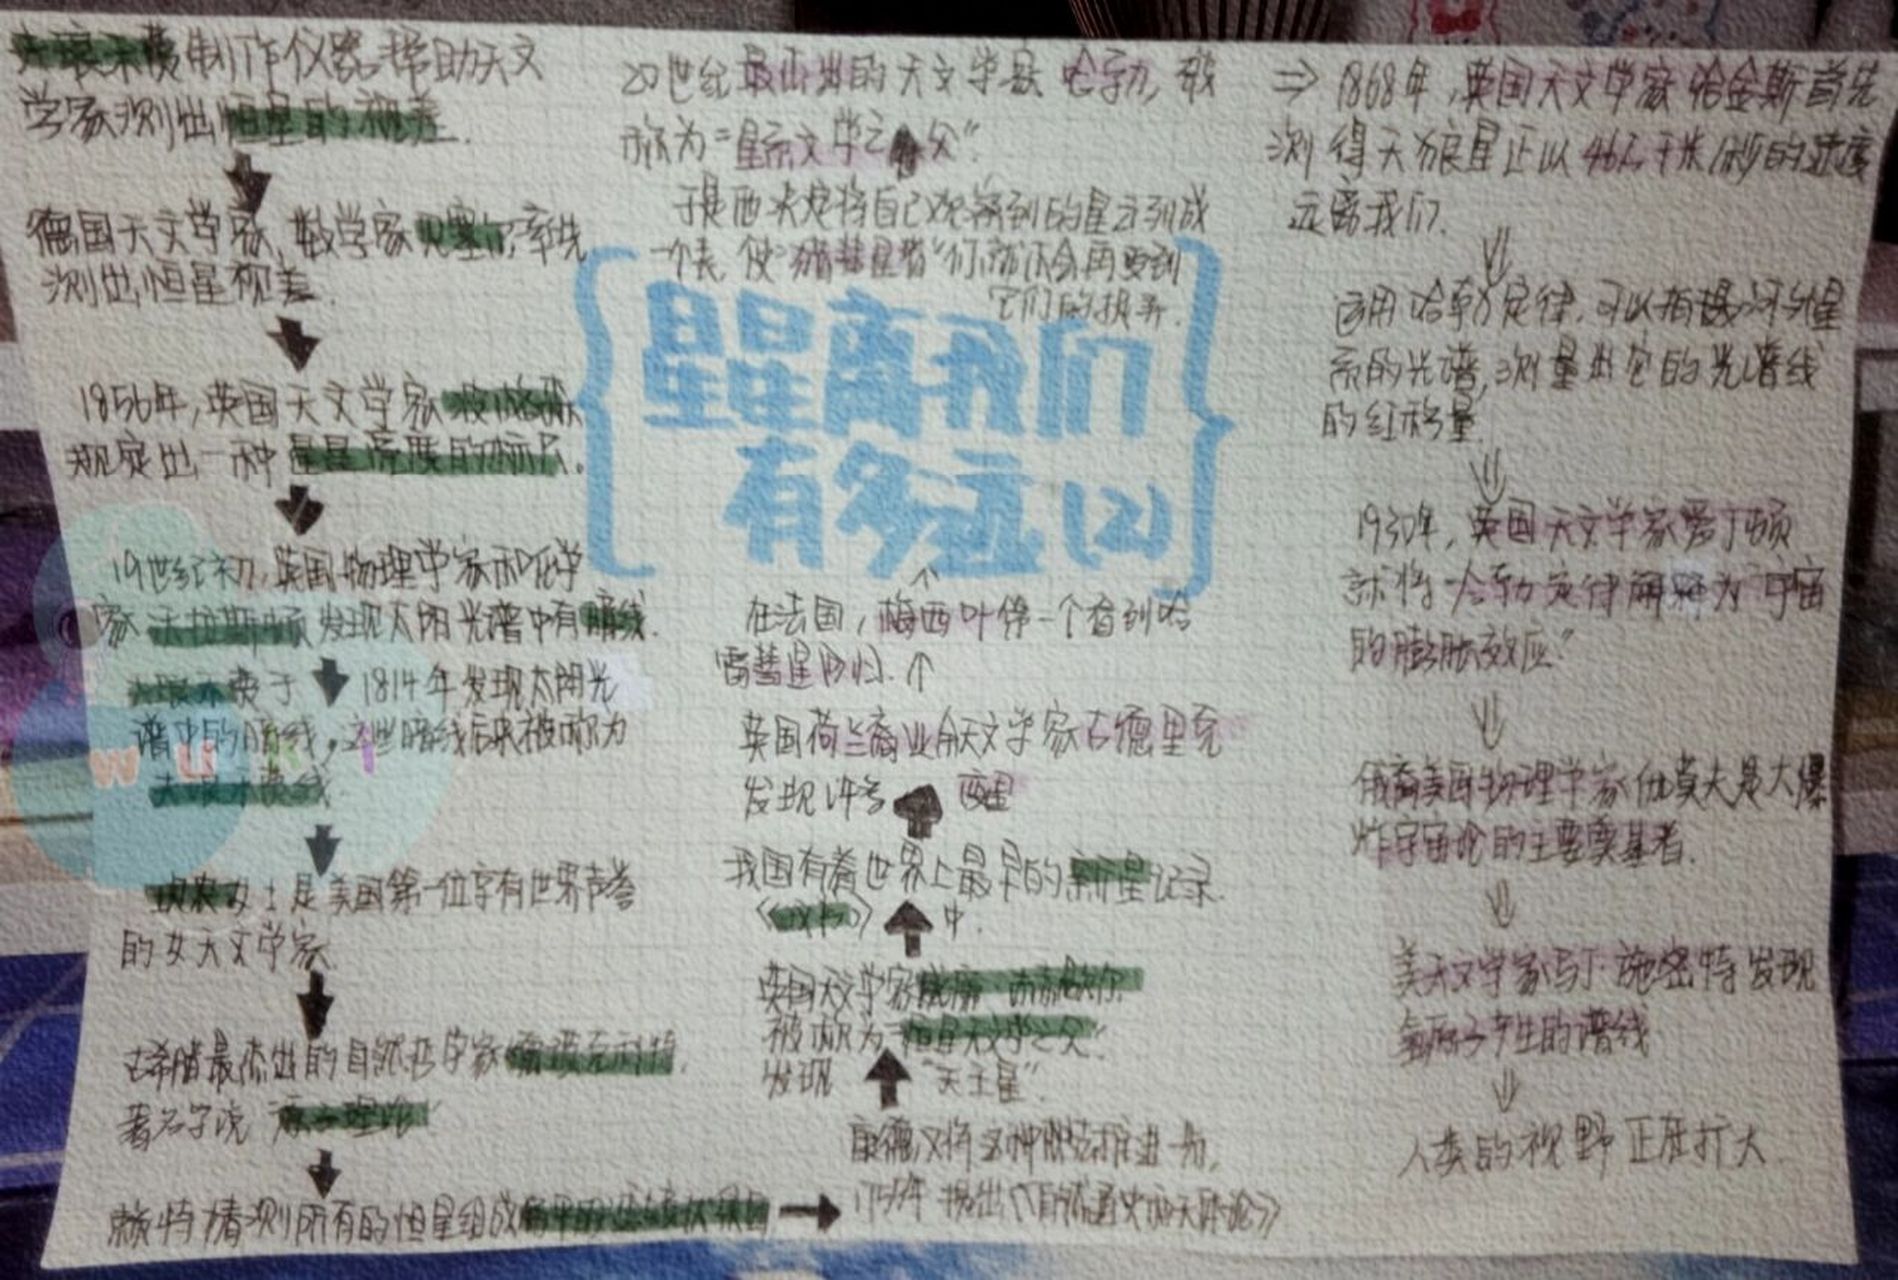 夫琅禾费制作仪器帮助天文
学家测出恒星的视差.
德国天文学家,数学家贝塞尔,率先
测出恒星视差.
1856年,英国天文学家
规定出一种星星亮度的标尺.
19世纪初,英国物理学家和化学
家沃拉斯顿发现太阳光谱中有暗线.
夫琅禾费于1814年发现太阳光
谱中的暗线,这些暗线后来被称为
夫琅禾费线
wuki
女士是美国第一位享有世界声誉
的女天文学家
古希腊最杰出的自然哲学家德谟克利特,
著名学说 原子理论
赖特猜测所有的恒星组成
康德又将这种
1755年 提出《自然通史和天体论》
英国天文学家威廉·赫歇尔
被称为"恒星天文学之父"
发现"天王星"
我国有着世界上最早的新星记录
《汉书》中.
英国荷兰裔业余天文学家古德里克
发现许多变星
在法国,梅西叶第一个看到哈
雷彗星回归.
星星离我们
有多远(2)
于是他决定将自己观察到的星云列成
一个表,使"猎彗星者"们就不会再受到
它们的
20世纪最杰出的天文学家 哈勃,被
称为"星系天文学之父"
⇒ 1868年,英国天文学家哈金斯首先
测得天狼星正以46.5千米/秒的速度
远离我们.
运用哈勃定律,可以拍摄河外星
系的光谱,测量出它的光谱线
的红移量.
1930年,英国天文学家爱丁顿
就将"哈勃定律解释为宇宙
的膨胀效应"
俄裔美国物理学家伽莫夫是大爆
炸宇宙论的主要奠基者.
美天文学家马丁·施密特发现
氢原子产生的谱线
人类的视野正在扩大